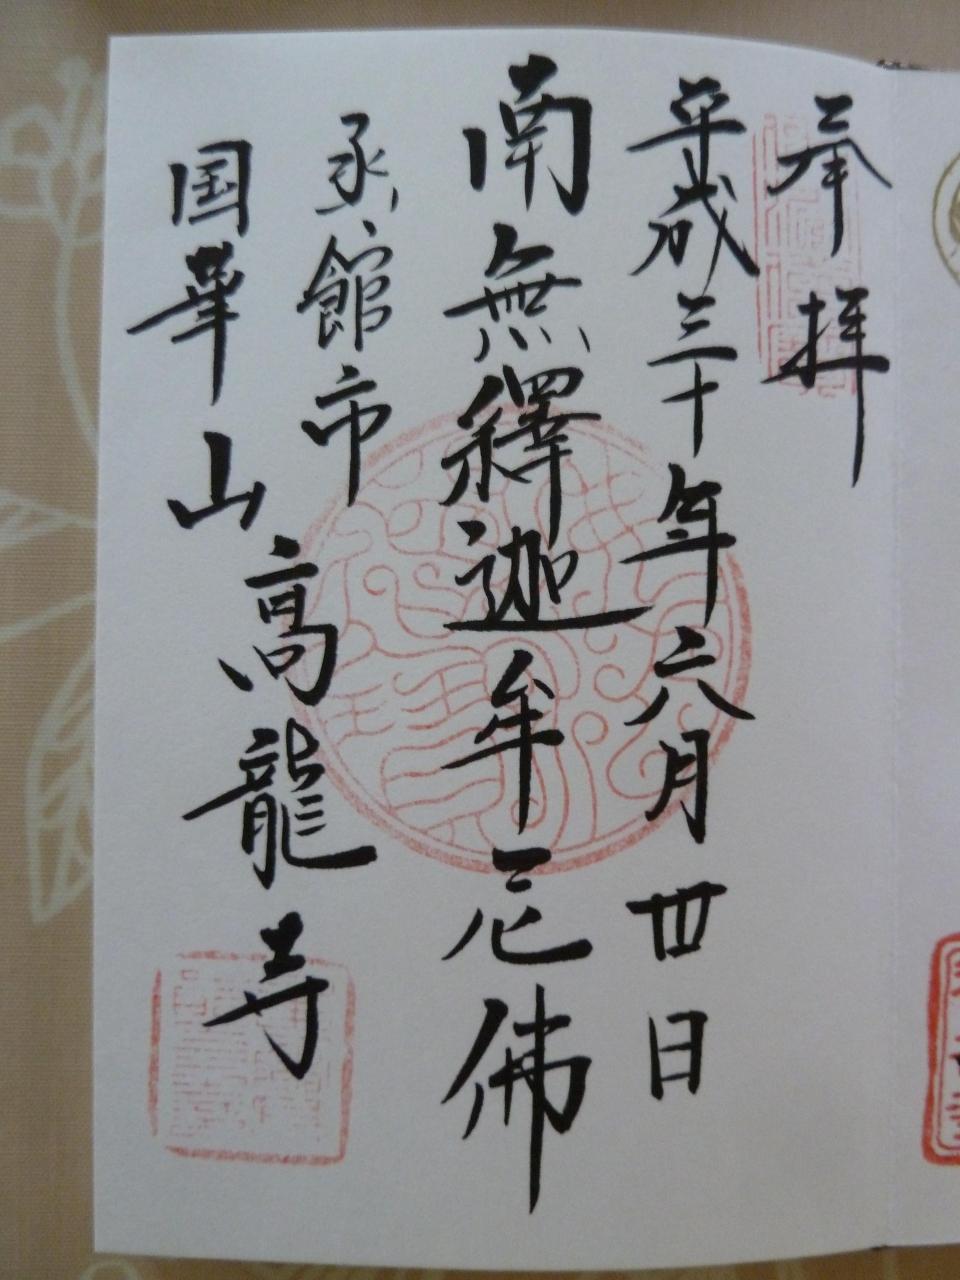 奉拝
平成三十年六月丗日
南無釋迦牟尼佛
函館市
国華山高龍寺